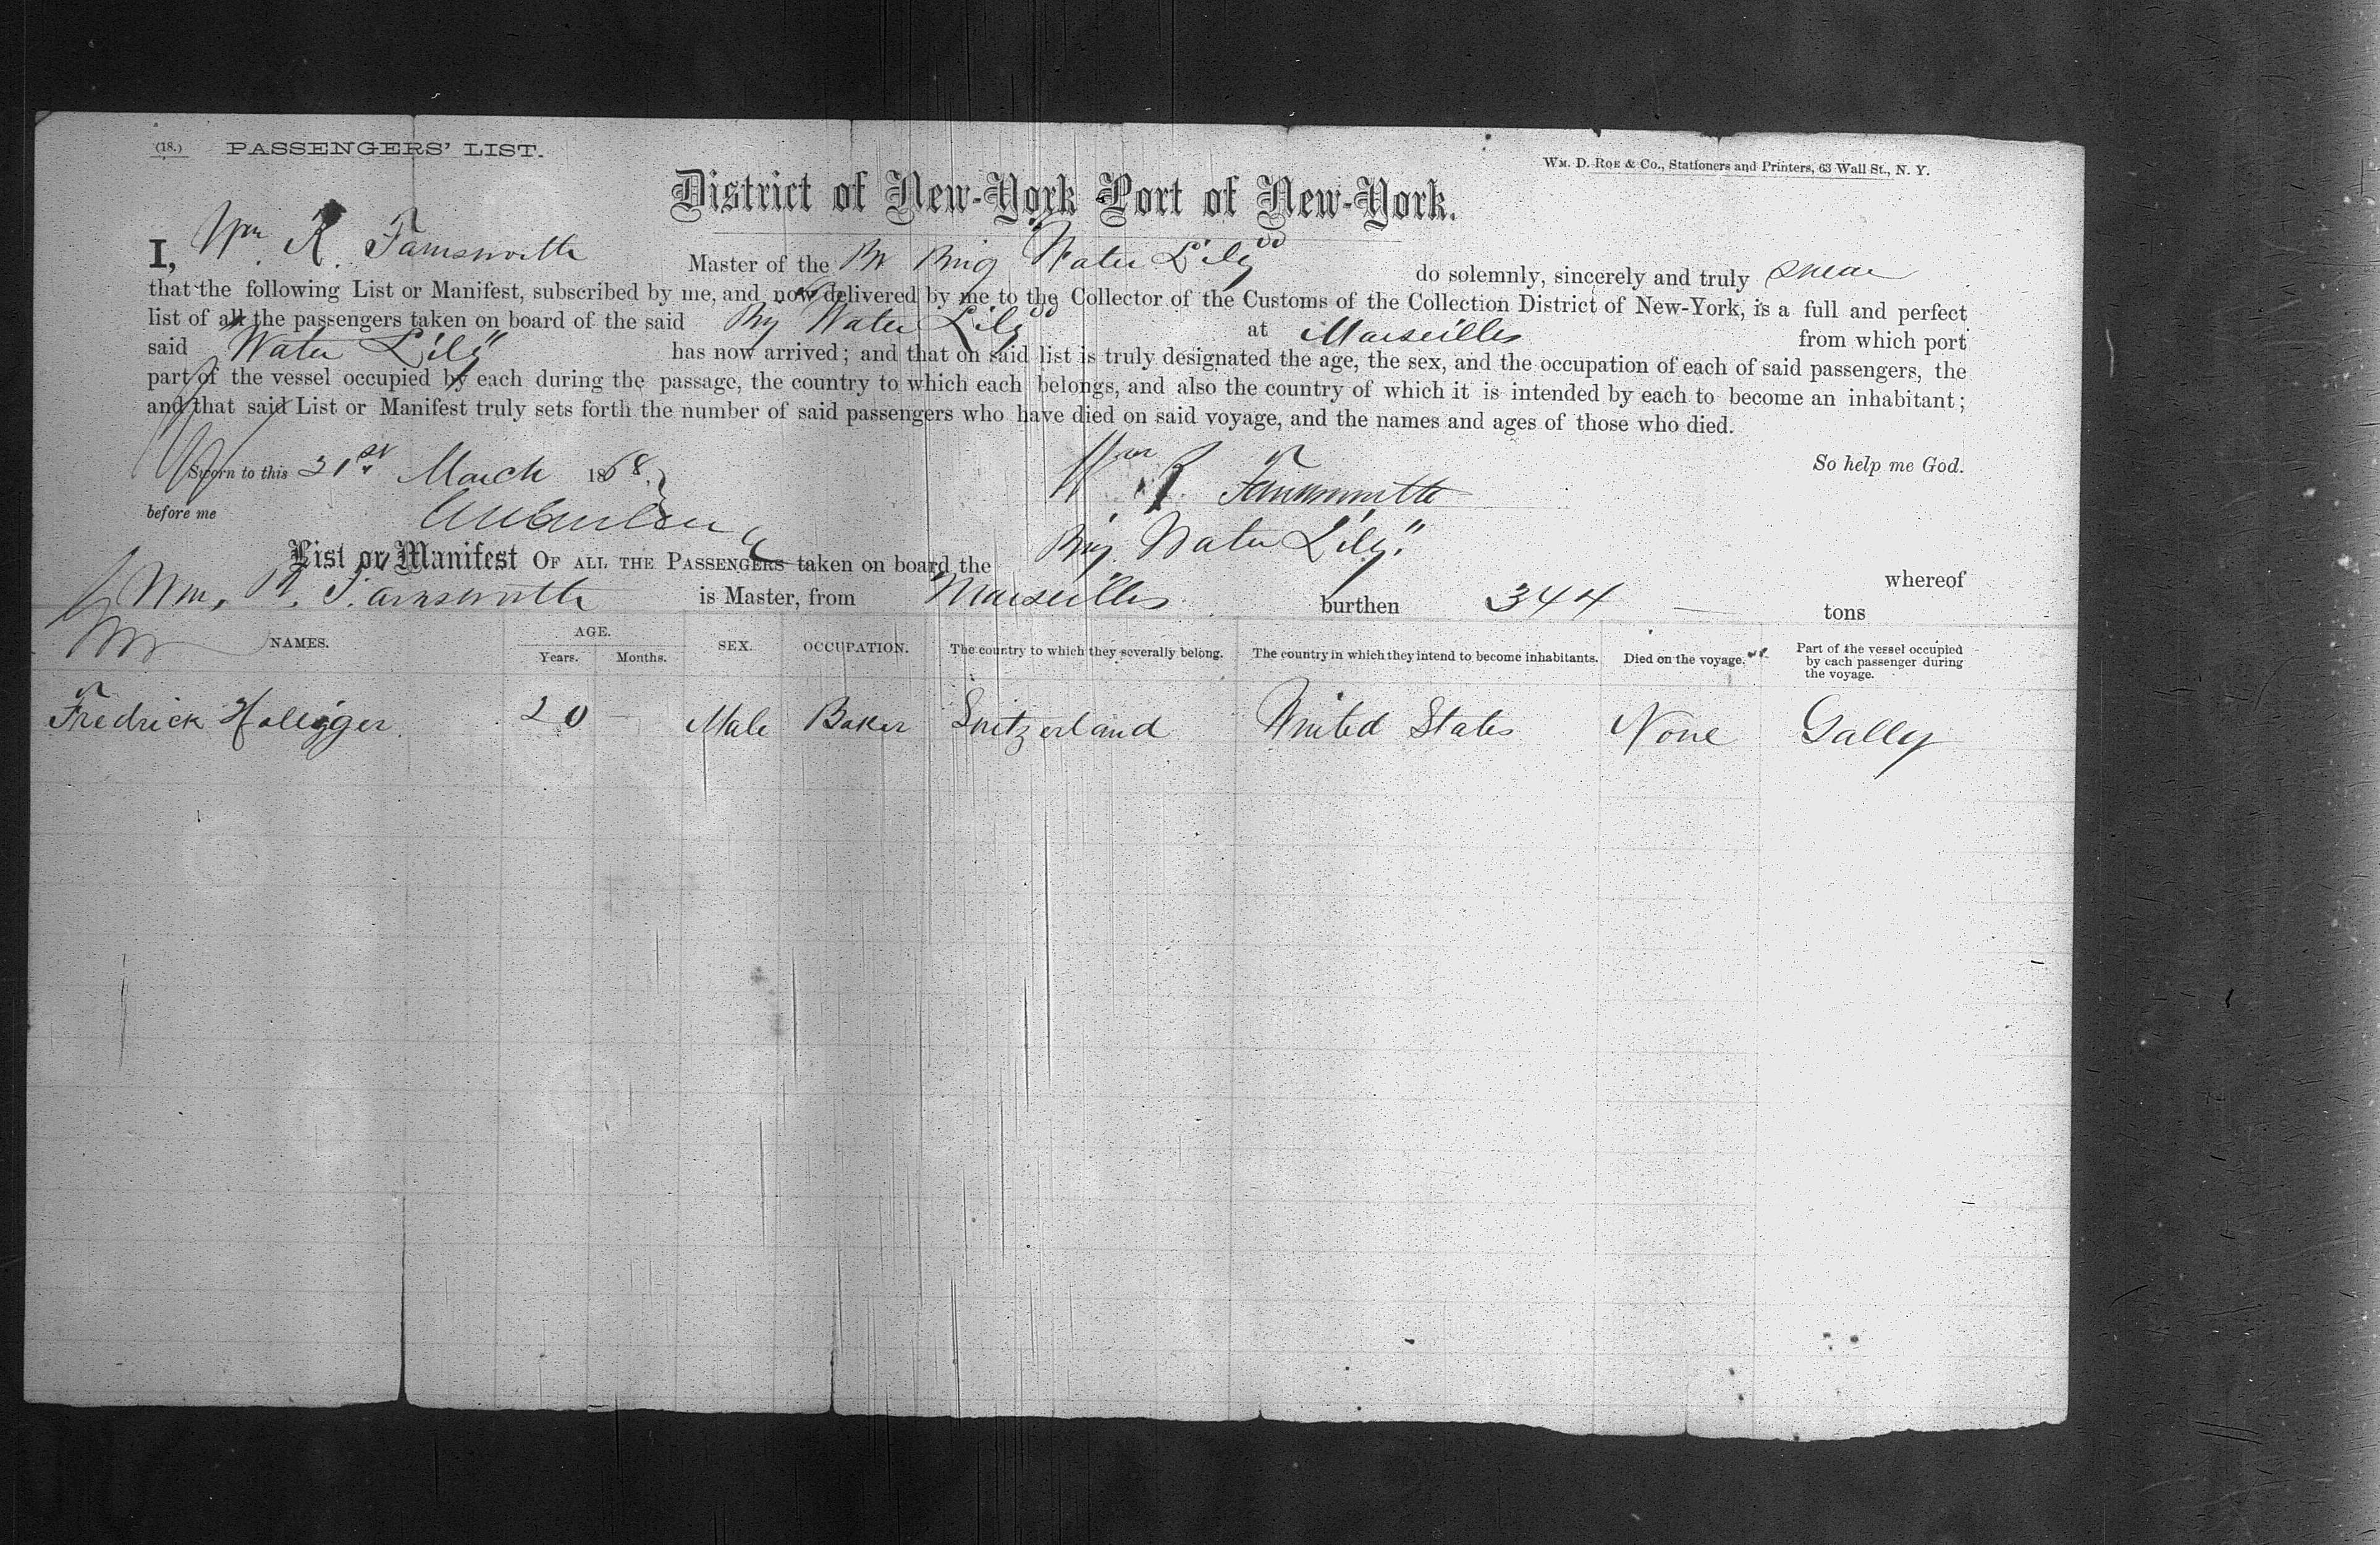 (18.) PASSENGERS' LIST.
WM. D. ROE & Co., Stationers and Printers, 63 Wall St., N. Y.
District of New-York Port of New-York.
I, Wm R. Farnsworth Master of the Br Brig "Water Lily" do solemnly, sincerely and truly swear
that the following List or Manifest, subscribed by me, and now delivered by me to the Collector of the Customs of the Collection District of New-York, is a full and perfect
list of all the passengers taken on board of the said Brig Water Lily" at Marseilles from which port
said "Water Lily" has now arrived; and that on said list is truly designated the age, the sex, and the occupation of each of said passengers, the
part of the vessel occupied by each during the passage, the country to which each belongs, and also the country of which it is intended by each to become an inhabitant;
and that said List or Manifest truly sets forth the number of said passengers who have died on said voyage, and the names and ages of those who died.
So help me God.
Sworn to this 21st March 1868.
Wm R Farnsworth
before me
Brig "Water Lily."
List or Manifest OF ALL THE PASSENGERS taken on board the
whereof
Wm. R. Farnsworth is Master, from Marseilles burthen 344 tons
NAMES. AGE. Years. Months. SEX. OCCUPATION. The country to which they severally belong. The country in which they intend to become inhabitants. Died on the voyage. Part of the vessel occupied by each passenger during the voyage.
Fredrick Holigger 20 Male Baker Switzerland United States None Gally